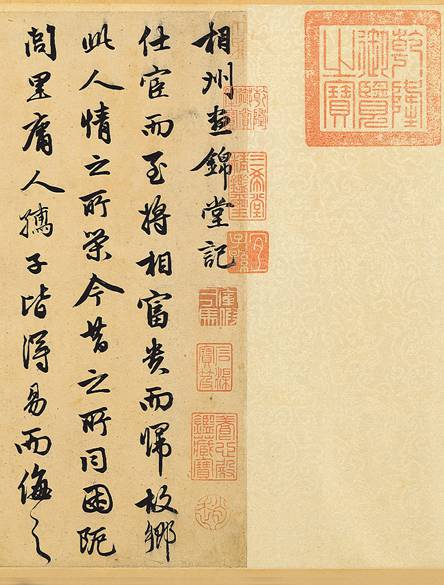 乾隆御覽之寶
相州昼錦堂記
仕宦而至將相富貴而歸故鄉
此人情之所榮今昔之所同困阨
閭里庸人孺子皆得易而侮之
三希堂精鑑璽
宜子孫
石渠寶笈
養心殿鑑藏寶
趙